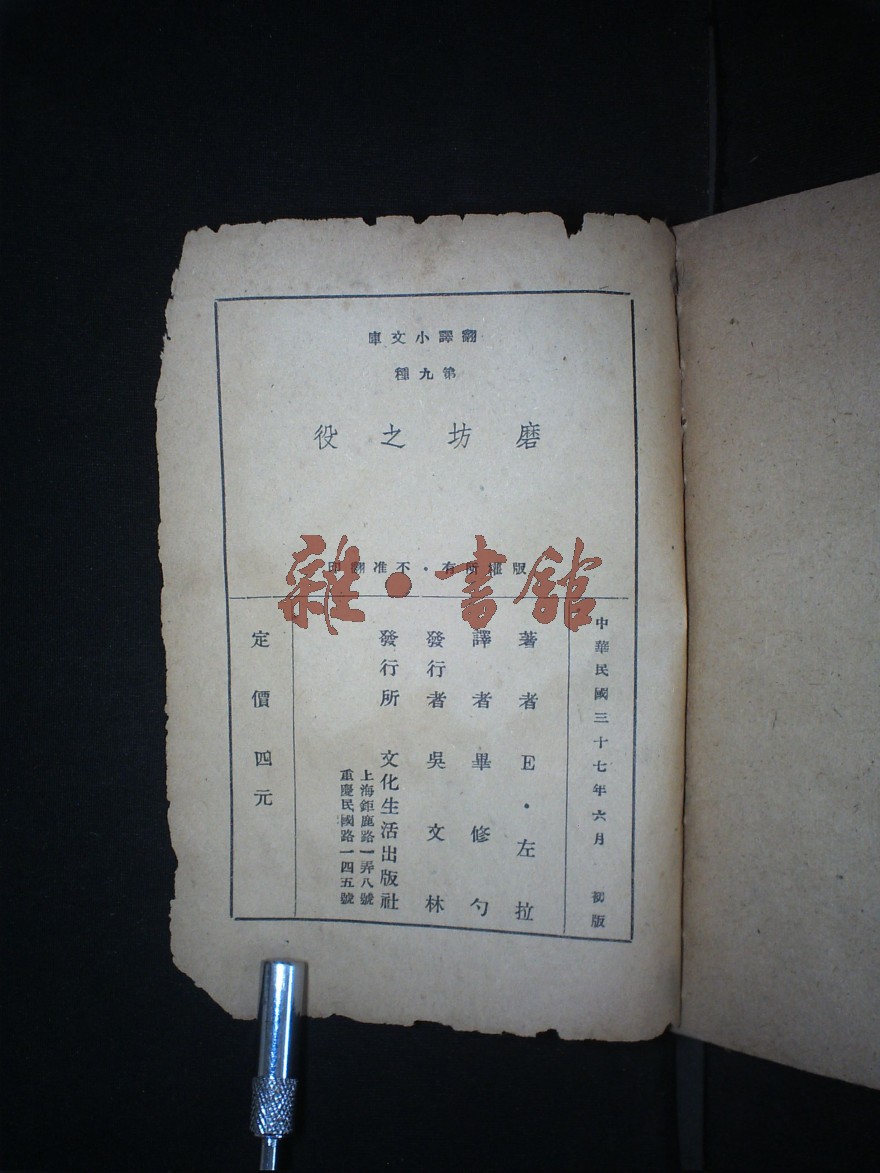 翻譯小文庫
第九種
磨坊之役
版權所有・不准翻印
中華民國三十七年六月 初版
著者 E・左拉
譯者 畢修勺
發行者 吳文林
發行所 文化生活出版社
上海鉅鹿路一弄八號
重慶民國路一四五號
定價四元
雜・書館